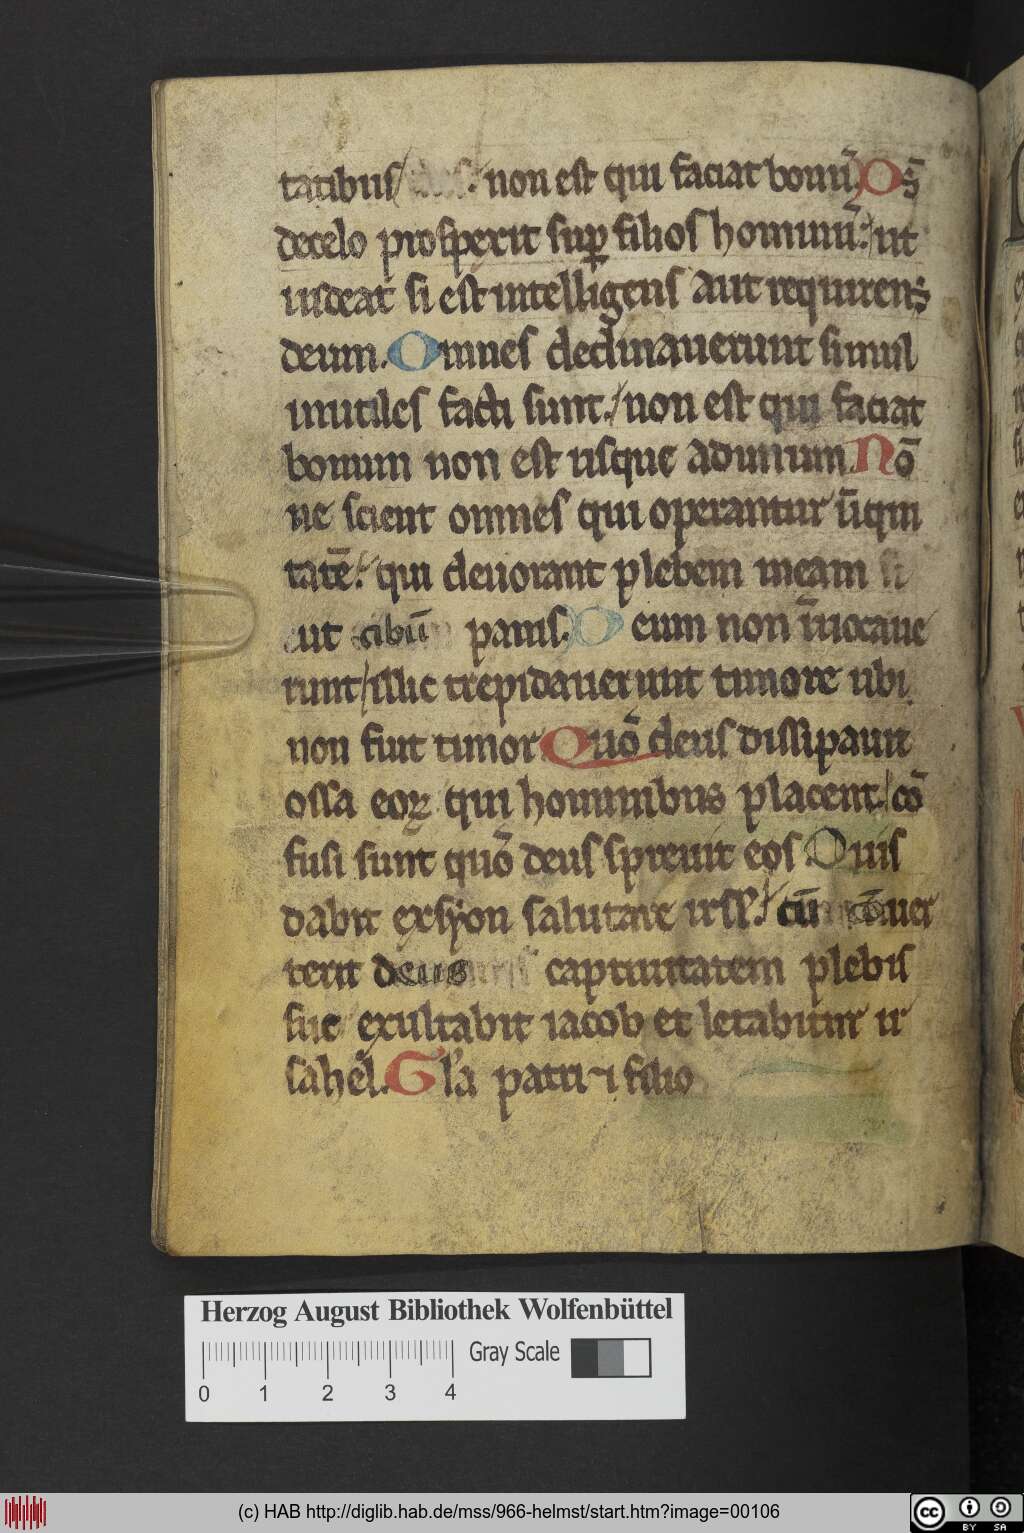 tatibus / non est qui faciat bonū. Ds̄
decelo prosperit sup̱ filios hominū. / ut
uideat si est intelligens aut requirens
deum. Omnes declinauerunt simul
inutiles facti sunt. / non est qui faciat
bonum non est usque adunum. Nō
ne scient omnes qui operantur īiqui
tatē. / qui deuorant plebem meam si
cut cibū panis. Deum non īuocaue
runt / illic trepidauerunt timore ubi
non fuit timor. Quō deus dissipauit
ossa eoꝝ qui hominibus placent. / cō
fusi sunt quō deus spreuit eos. Quis
dabit exsyon salutare irſſ. / cū cōuer
terit deus captiuitatem plebis
sue exultabit iacob et letabitur ir
sahel. Gl'a patri ⁊ filio
Herzog August Bibliothek Wolfenbüttel
0 1 2 3 4
Gray Scale
(c) HAB http://diglib.hab.de/mss/966-helmst/start.htm?image=00106
cc BY SA